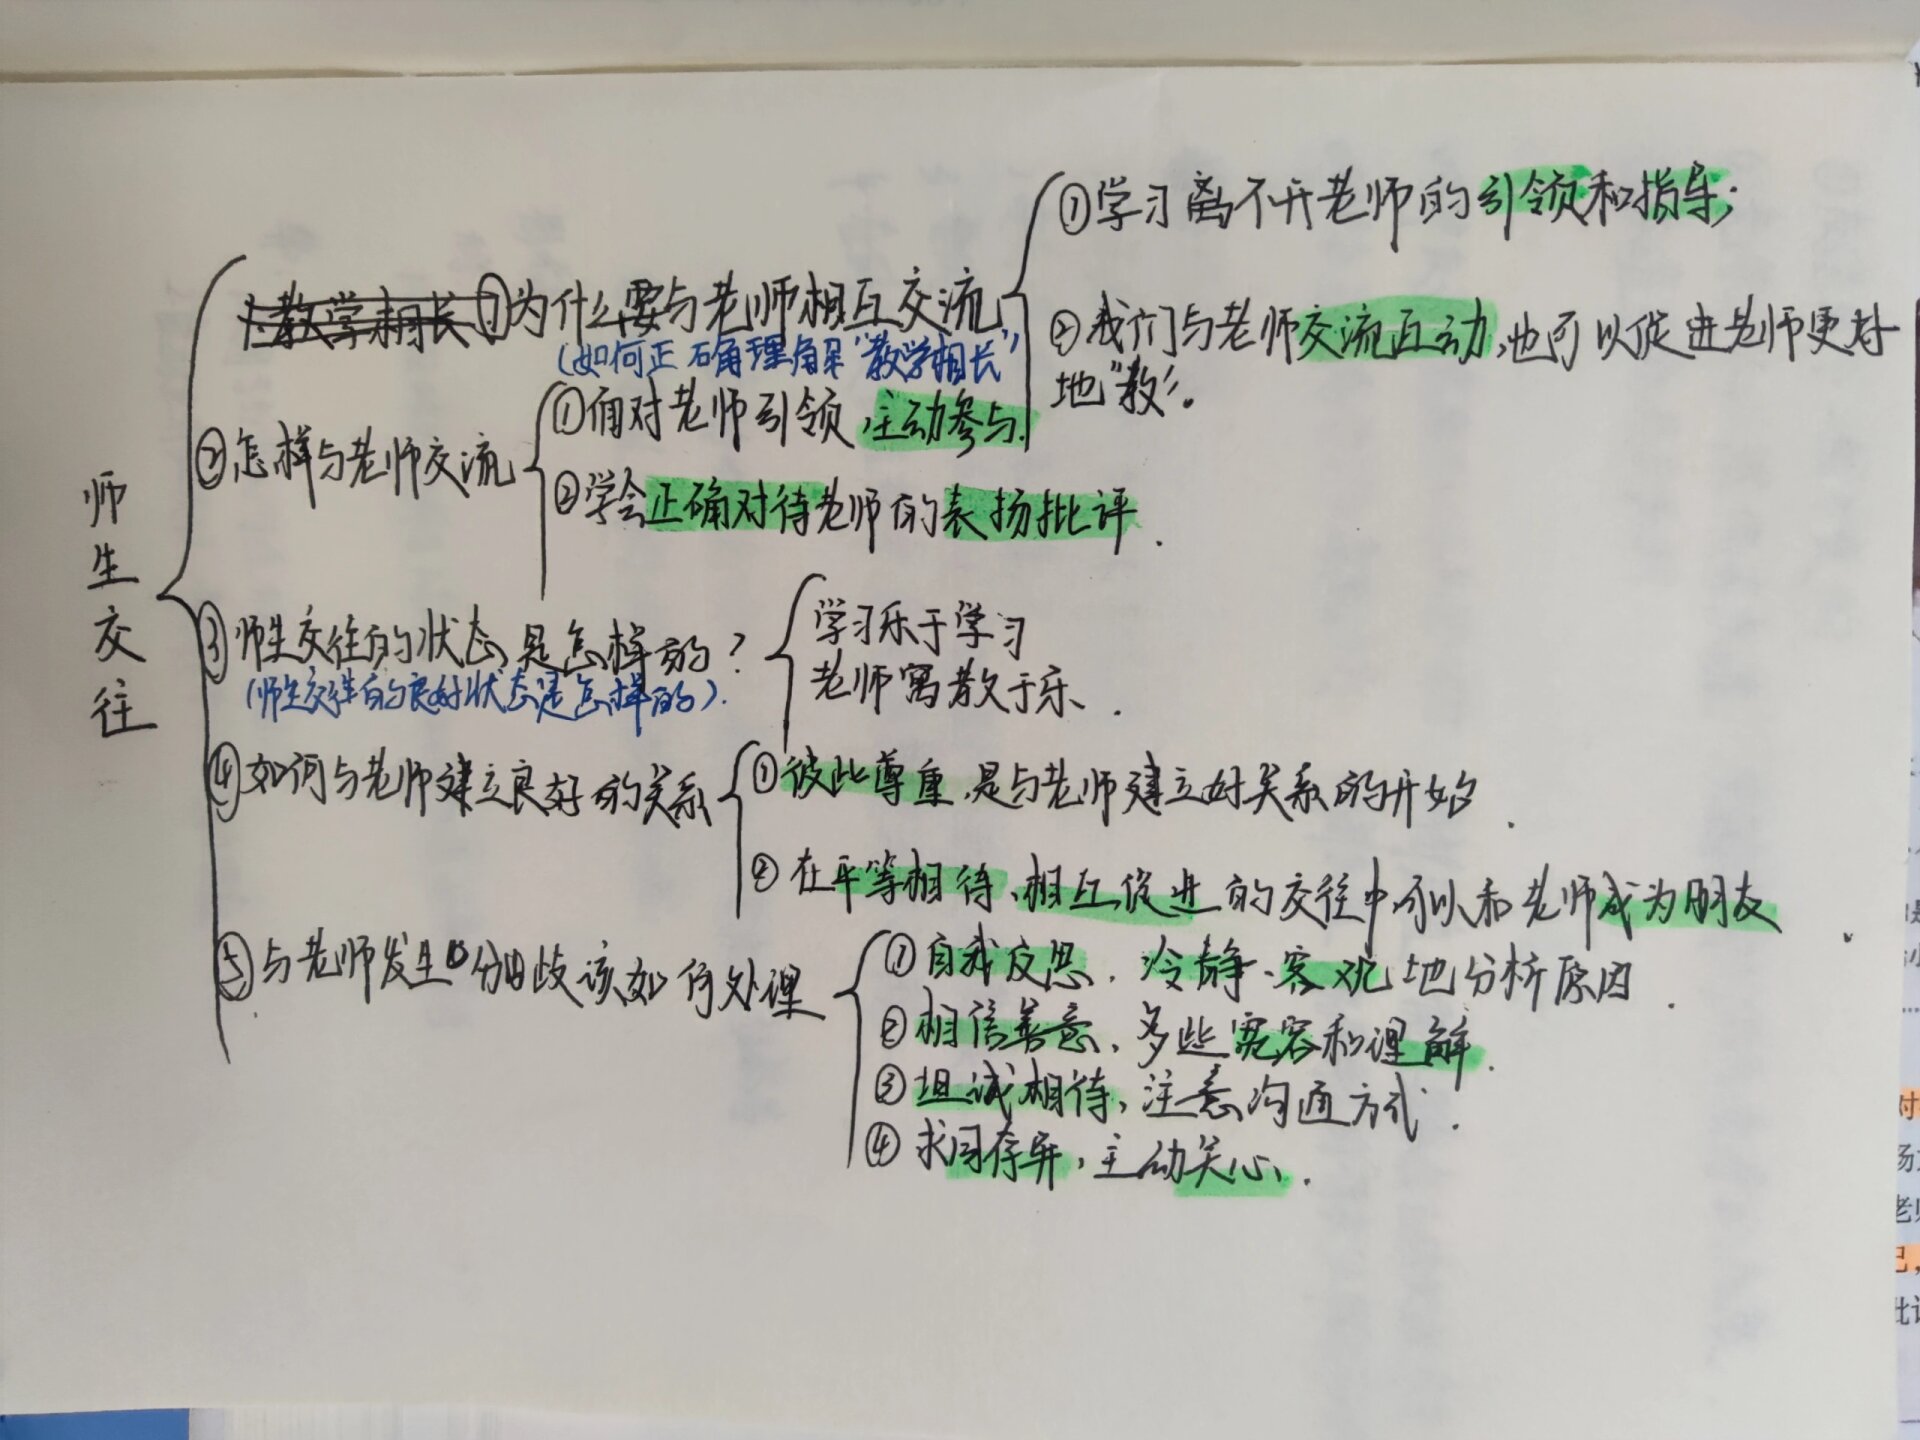 师生交往
①为什么要与老师相互交流
(如何正确理解“教学相长”)
①学习离不开老师的引领和指导;
②我们与老师交流互动,也可以促进老师更好
地“教”。
②怎样与老师交流
①面对老师引领,主动参与.
②学会正确对待老师的表扬批评.
③师生交往的状态是怎样的?
(师生交往的良好状态是怎样的).
学习乐于学习
老师寓教于乐.
④如何与老师建立良好的关系
①彼此尊重,是与老师建立好关系的开始.
②在平等相待、相互促进的交往中可以和老师成为朋友
⑤与老师发生分歧该如何处理
①自我反思,冷静、客观地分析原因.
②相信善意,多些宽容和理解.
③坦诚相待,注意沟通方式.
④求同存异,主动关心.